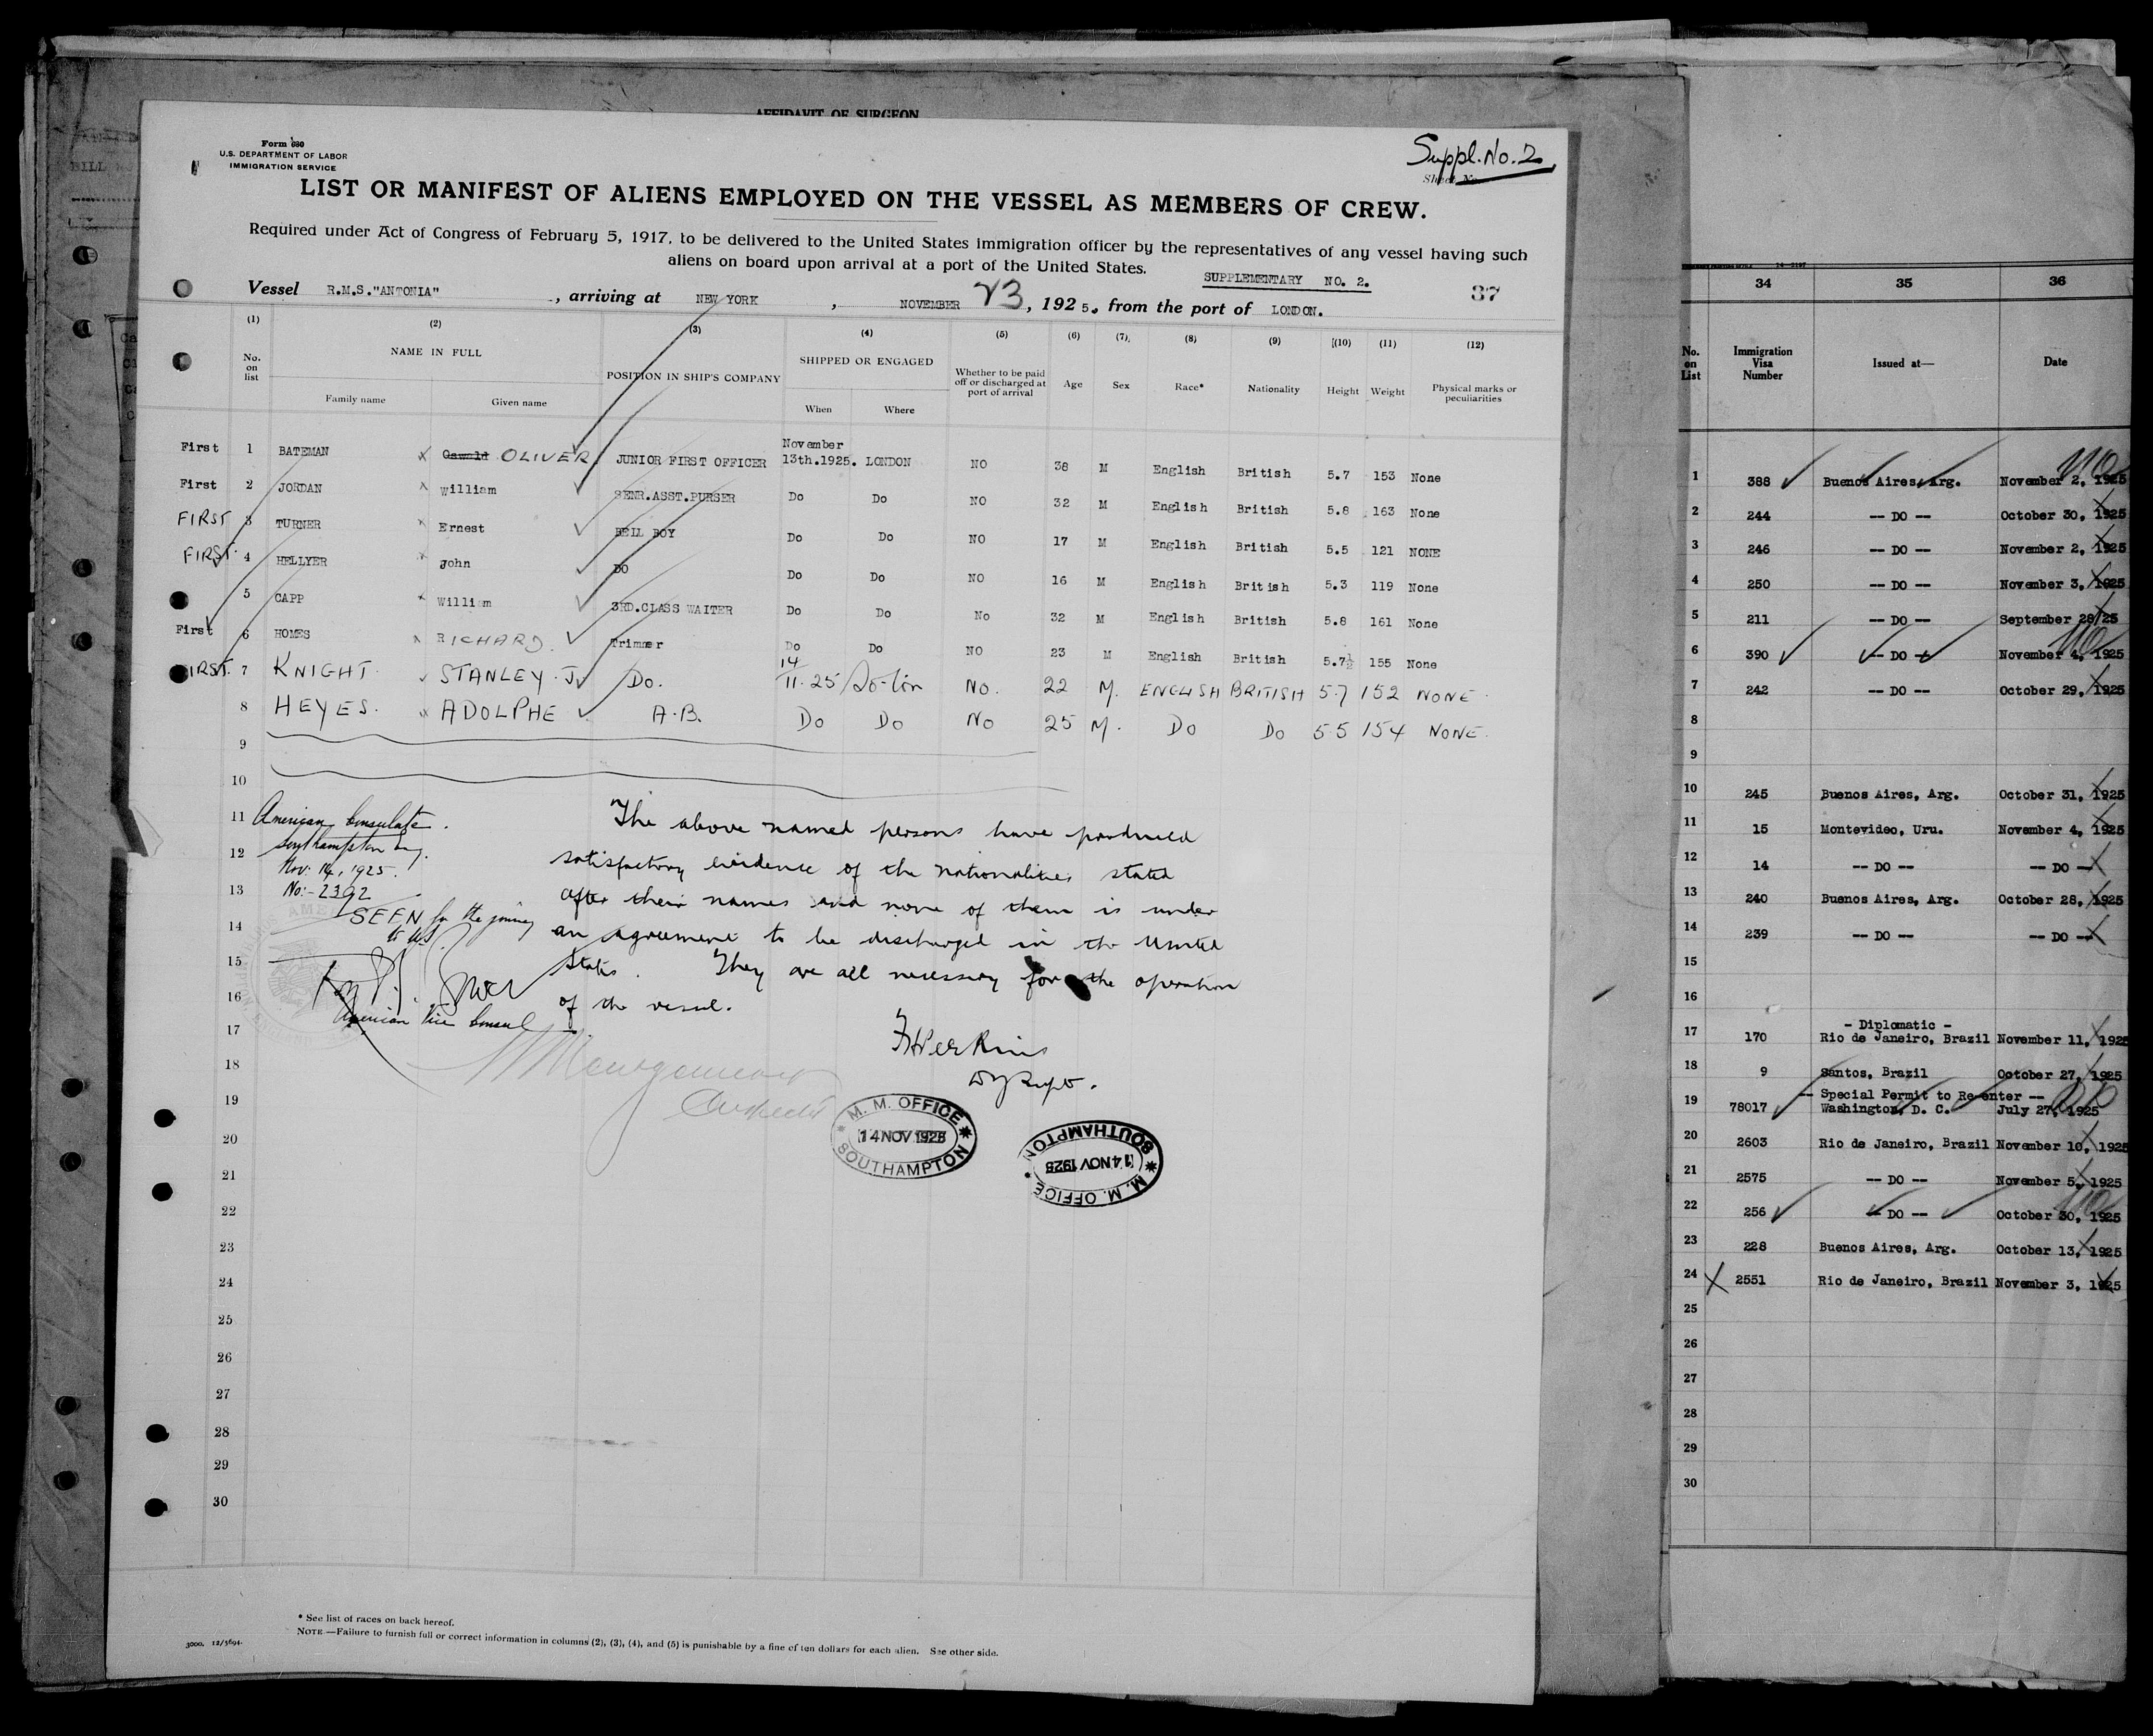 AFFIDAVIT OF SURGEON
Form 680
U.S. DEPARTMENT OF LABOR
IMMIGRATION SERVICE
Suppl. No. 2
Sheet No.
LIST OR MANIFEST OF ALIENS EMPLOYED ON THE VESSEL AS MEMBERS OF CREW.
Required under Act of Congress of February 5, 1917, to be delivered to the United States immigration officer by the representatives of any vessel having such
aliens on board upon arrival at a port of the United States.
SUPPLEMENTARY NO. 2.
37
Vessel R.M.S."ANTONIA", arriving at NEW YORK, NOVEMBER 23, 1925. from the port of LONDON.
(1) (2) (3) (4) (5) (6) (7) (8) (9) (10) (11) (12)
No. on list NAME IN FULL Family name Given name POSITION IN SHIP'S COMPANY SHIPPED OR ENGAGED When Where Whether to be paid off or discharged at port of arrival Age Sex Race* Nationality Height Weight Physical marks or peculiarities
First 1 BATEMAN Oswald OLIVER. JUNIOR FIRST OFFICER November 13th.1925. LONDON NO 38 M English British 5.7 153 None
First 2 JORDAN William SENR.ASST.PURSER Do Do NO 32 M English British 5.8 163 None
FIRST 3 TURNER Ernest BELL BOY Do Do NO 17 M English British 5.5 121 NONE
FIRST. 4 HELLYER John DO Do Do NO 16 M English British 5.3 119 None
5 CAPP William 3RD.CLASS WAITER Do Do No 32 M English British 5.8 161 None
First 6 HOMES RICHARD. Trimmer Do Do NO 23 M English British 5.7½ 155 None
FIRST. 7 KNIGHT. STANLEY. J. Do. 14/11.25 So-ton No. 22 M. ENGLISH BRITISH 5.7 152 NONE.
8 HEYES. ADOLPHE A.B. Do Do No 25 M. Do Do 5.5 154 NONE.
9
10
11 American Consulate.
12 Southampton Eng.
Nov: 14, 1925.
13 No:- 2392
SEEN for the journey
14 to U.S.
15
16
American Vice Consul
The above named persons have produced
satisfactory evidence of the nationalities stated
after their names and none of them is under
an agreement to be discharged in the United
States. They are all necessary for the operation
of the vessel.
17
18
19
20
21
22
23
24
25
26
27
28
29
30
FH Perkins
Dy Supt.
M. M. OFFICE
14 NOV 1925
SOUTHAMPTON
M. M. OFFICE
14 NOV 1925
SOUTHAMPTON
* See list of races on back hereof.
NOTE.—Failure to furnish full or correct information in columns (2), (3), (4), and (5) is punishable by a fine of ten dollars for each alien. See other side.
3000. 12/5694.
34 35 36
No. on List Immigration Visa Number Issued at— Date
1 388 Buenos Aires, Arg. November 2, 1925
2 244 -- DO -- October 30, 1925
3 246 -- DO -- November 2, 1925
4 250 -- DO -- November 3, 1925
5 211 -- DO -- September 28/25
6 390 -- DO -- November 4, 1925
7 242 -- DO -- October 29, 1925
8
9
10 245 Buenos Aires, Arg. October 31, 1925
11 15 Montevideo, Uru. November 4, 1925
12 14 -- DO -- -- DO --
13 240 Buenos Aires, Arg. October 28, 1925
14 239 -- DO -- -- DO --
15
16
17 170 - Diplomatic - Rio de Janeiro, Brazil November 11, 1925
18 9 Santos, Brazil October 27, 1925
19 78017 -- Special Permit to Re-enter -- Washington, D. C. July 27, 1925
20 2603 Rio de Janeiro, Brazil November 10, 1925
21 2575 -- DO -- November 5, 1925
22 256 -- DO -- October 30, 1925
23 228 Buenos Aires, Arg. October 13, 1925
24 2551 Rio de Janeiro, Brazil November 3, 1925
25
26
27
28
29
30